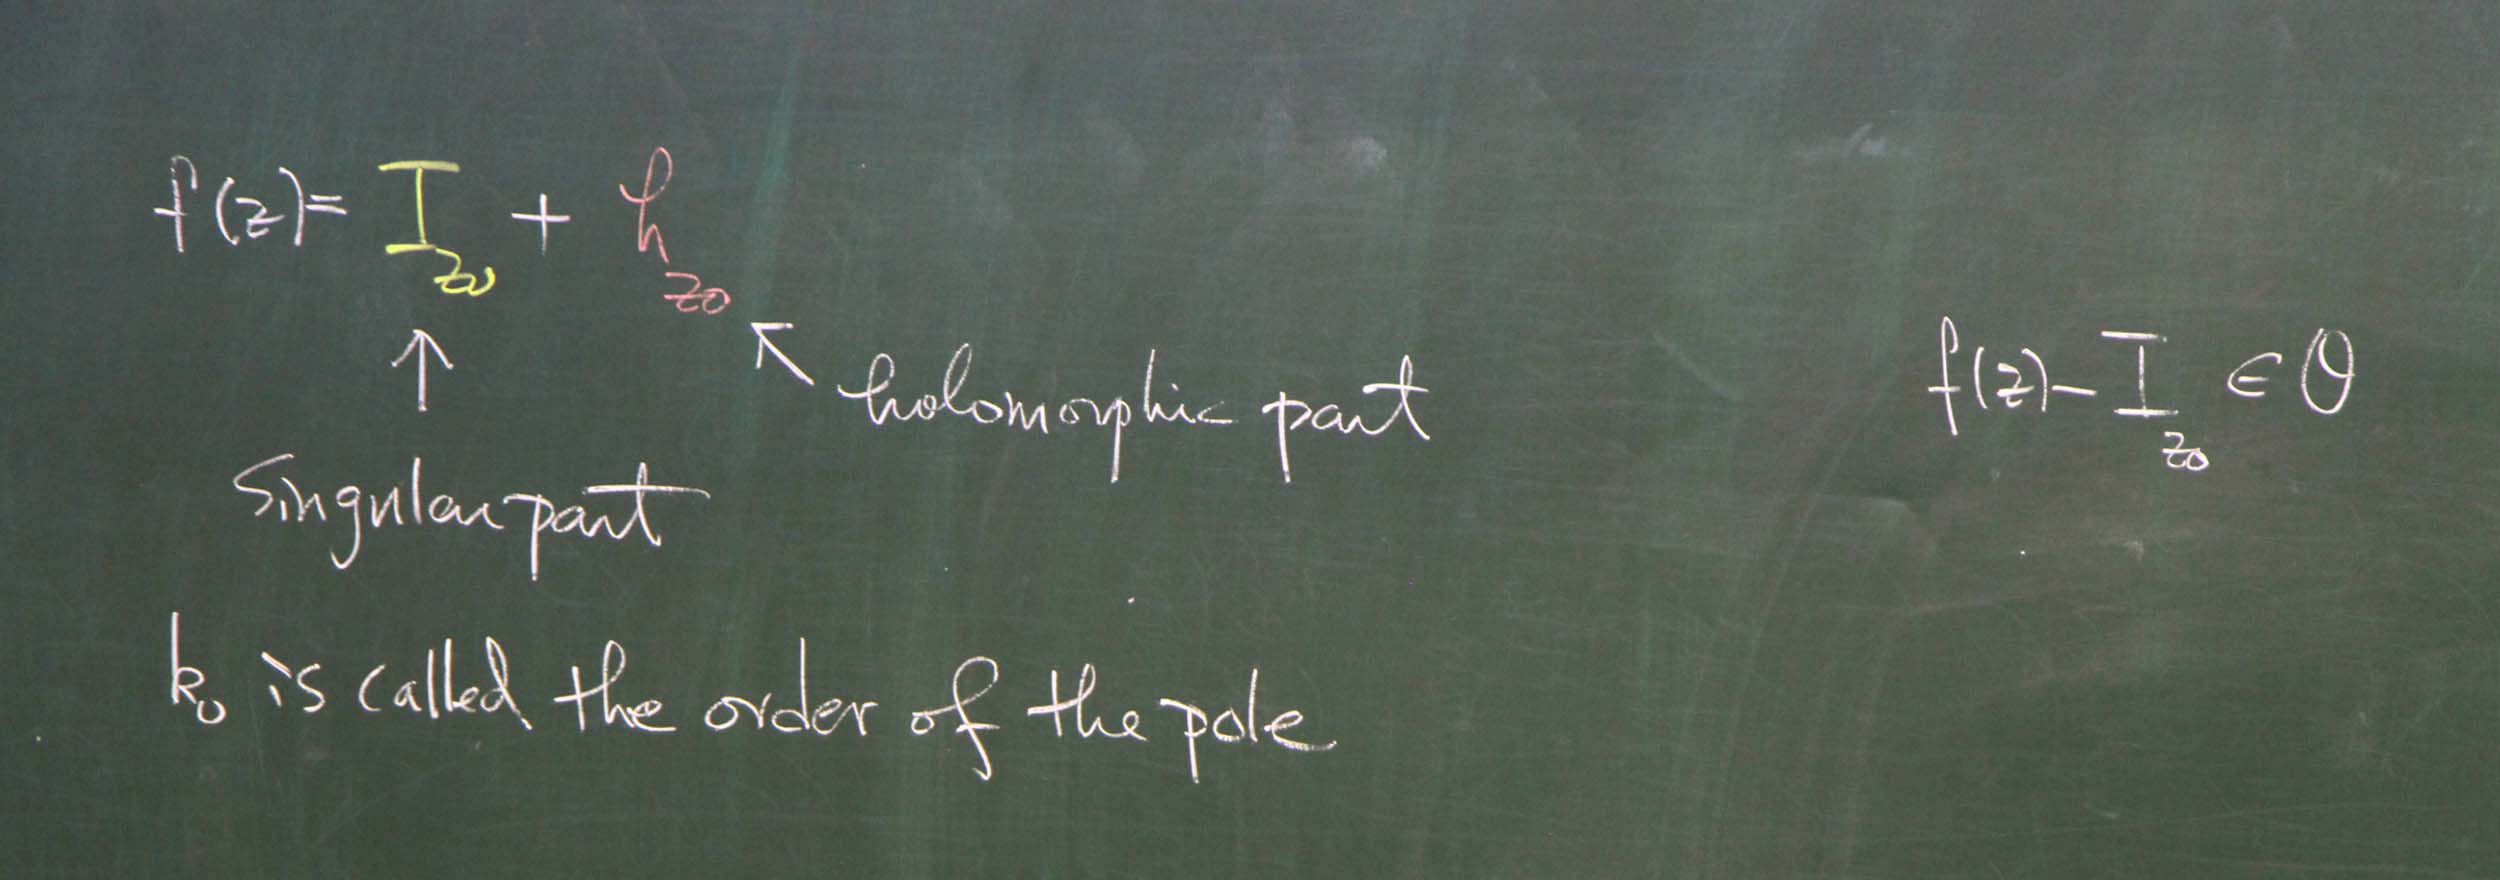 f(z)= I_{z_0} + h_{z_0}
↑ ↖ holomorphic part
Singular part
f(z)- I_{z_0} ∈ O
k_0 is called the order of the pole